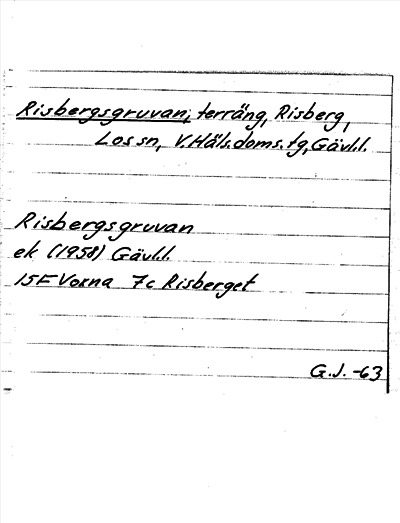 Risbergsgruvan; terräng, Risberg,
Los sn, V.Häls.doms.tg, Gävl.l.
Risbergsgruvan
ek (1958) Gävl.l.
15F Voxna 7c Risberget
G.J. -63